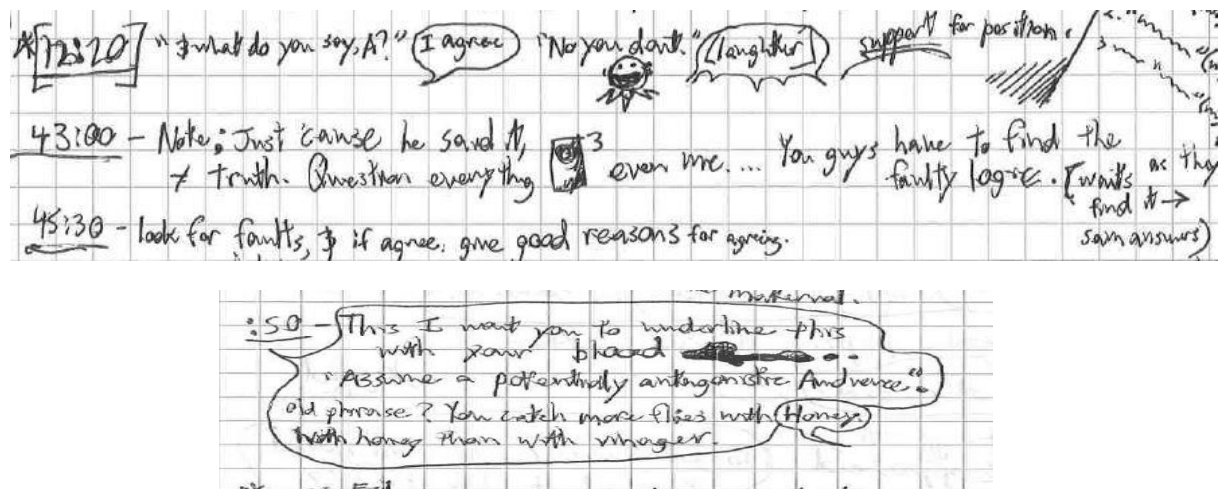 *[12:20] "& what do you say, A?" I agree "No you dont." [laughter] support for position.
43:00 – Note: Just 'cause he said it,
≠ truth. Question everything even me.... You guys have to find the
faulty logic. [waits as they
find it →
45:30 – look for faults, & if agree, give good reasons for agreeing.
Sam answers)
material.
:50 – This I want you to underline this
with your blood
"Assume a potentially antagonistic Audience".
old phrase? You catch more flies with Honey
with honey than with vinager.